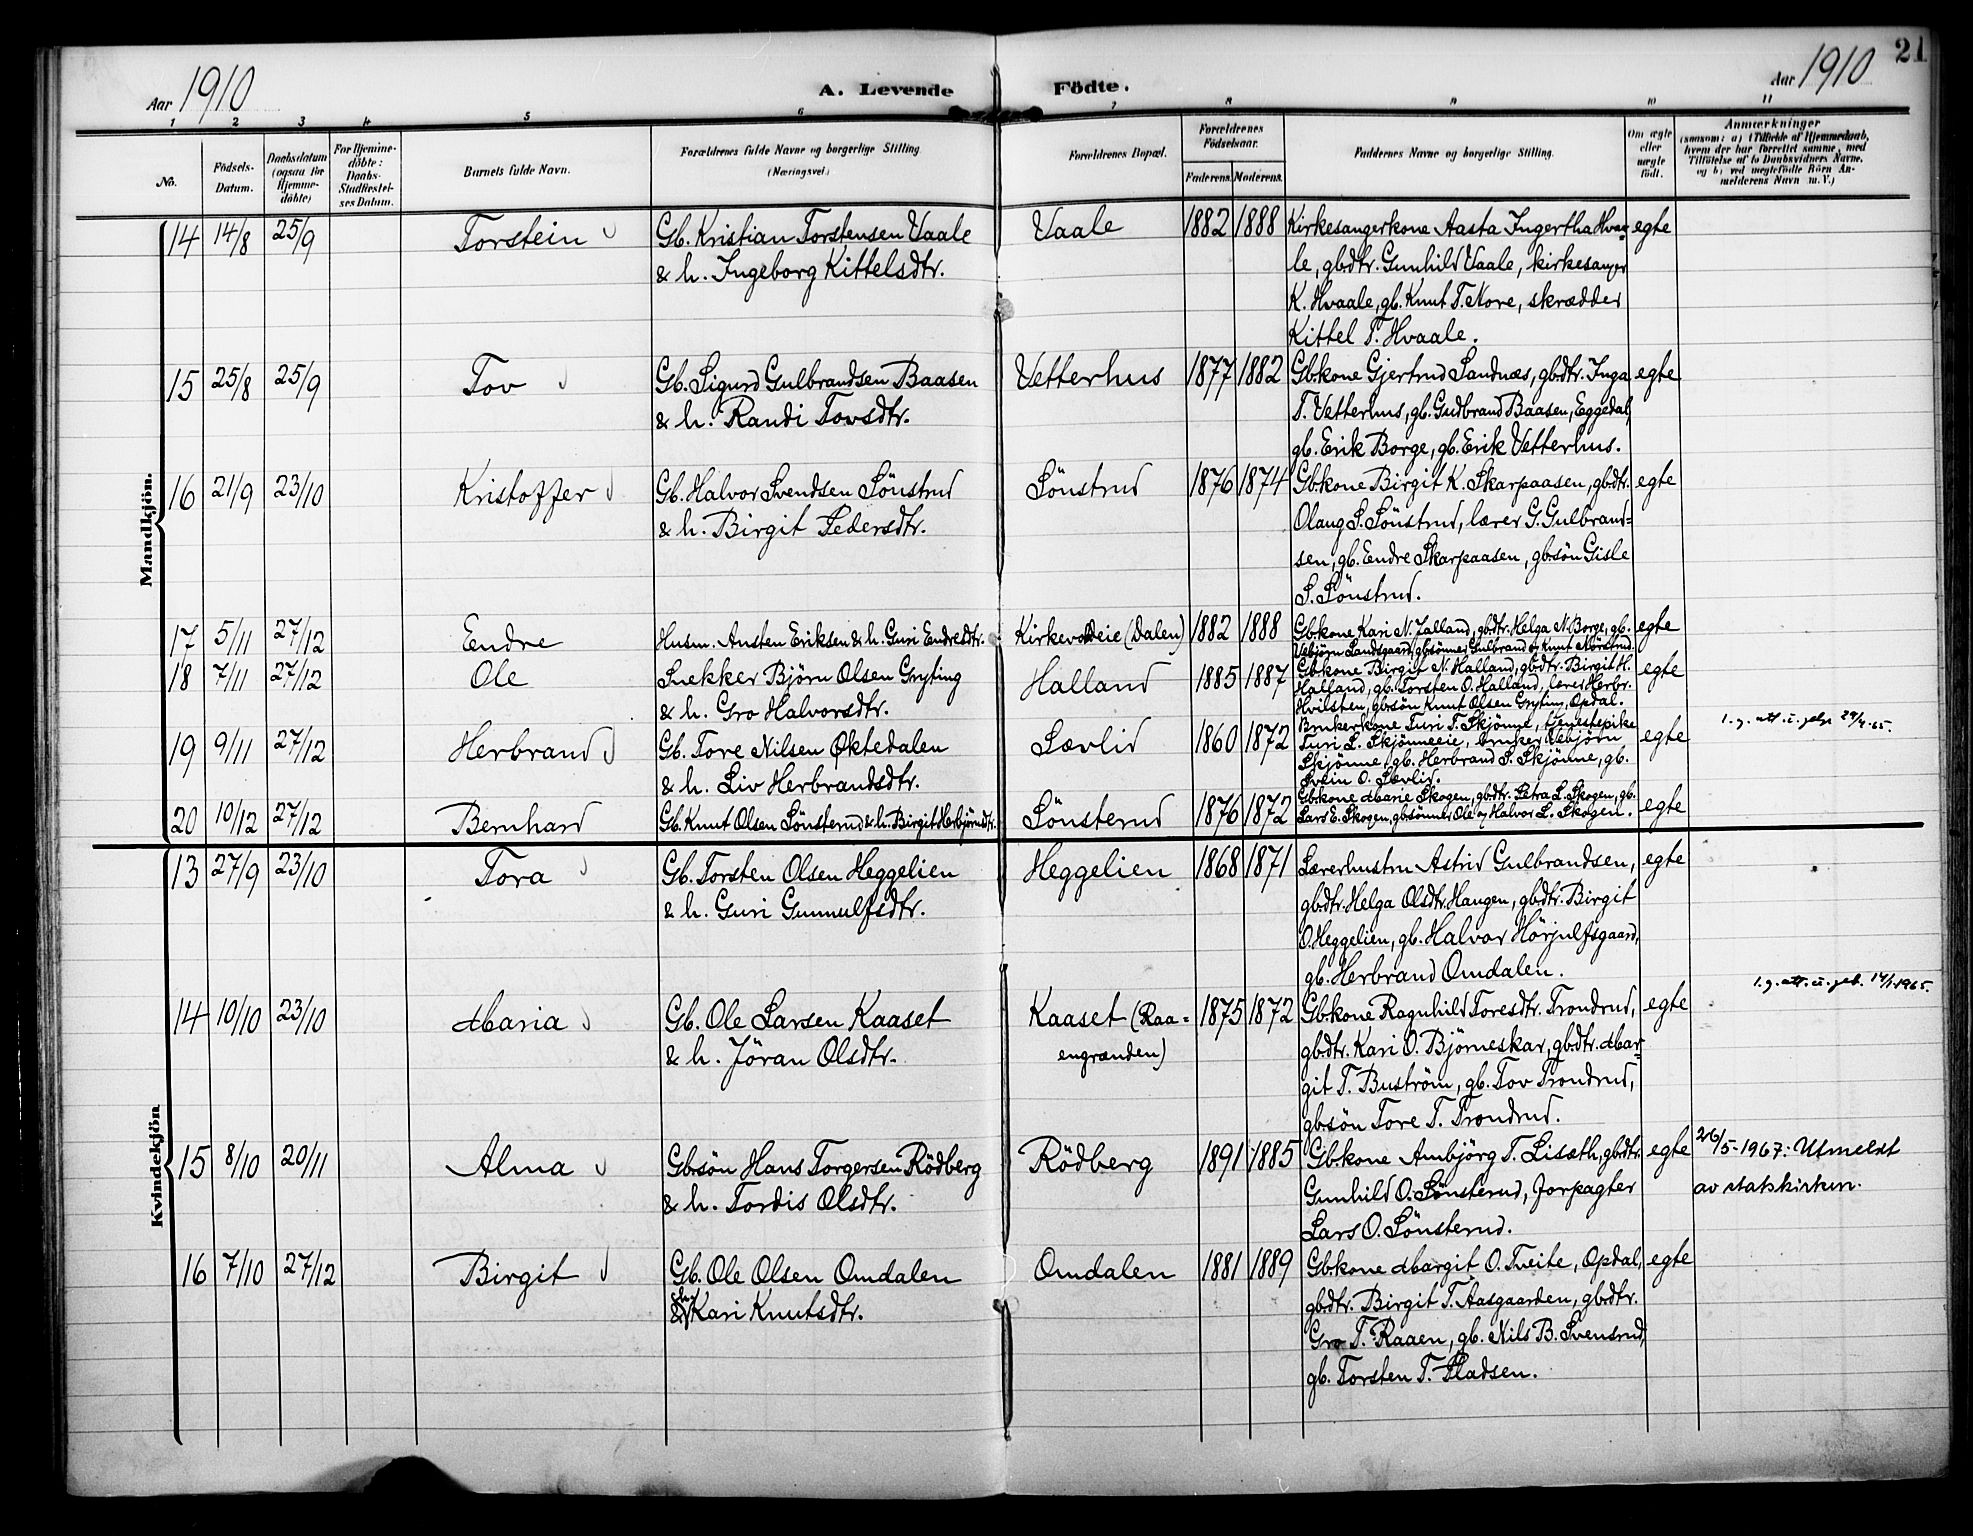 21
Aar 1910
A. Levende Födte.
Aar 1910
1 2 3 4 5 6 7 8 9 10 11
No.
Födsels-
Datum.
Daabsdatum
(ogsaa for
Hjemme-
döbte)
For Hjemme-
döbte:
Daabs-
Stadfæstel-
ses Datum.
Barnets fulde Navn.
Forældrenes fulde Navne og borgerlige Stilling.
(Næringsvei.)
Forældrenes Bopæl.
Forældrenes
Födselsaar.
Faderens. Moderens.
Faddernes Navne og borgerlige Stilling.
Om ægte
eller
uægte
födt.
Anmærkninger
(saasom: a) i Tilfælde af Hjemmedaab,
hvem der har forrettet samme, med
Tilföielse af to Daabsvidners Navne,
og b) ved uægtefödte Börn An-
melderens Navn m. V.)
Mandkjön.
14 14/8 25/9 Torstein Gb. Kristian Torstensen Vaale Vaale 1882 1888 Kirkesangerkone Aasta Ingertha Hvaa- egte
& h. Ingeborg Kittelsdtr. le, gbdtr. Gunhild Vaale, kirkesanger
K. Hvaale, gb. Knut T. Nore, skrædder
Kittel T. Hvaale.
15 25/8 25/9 Tov Gb. Sigurd Gulbrandsen Baasen Vetterhus 1877 1882 Gbkone Gjertrud Sandnæs, gbdtr. Inga egte
& h. Randi Tovsdtr. T. Vetterhus, gb. Gudbrand Baasen, Eggedal,
gb. Erik Borge, gb. Erik Vetterhus.
16 21/9 23/10 Kristoffer Gb. Halvor Svendsen Sönstrud Sönstrud 1876 1874 Gbkone Birgit K. Skarpaasen, gbdtr. egte
& h. Birgit Pedersdtr. Olaug S. Sönstrud, lærer G. Gulbrand-
sen, gb. Endre Skarpaasen, gbsön Gisle
S. Sönstrud.
17 5/11 27/12 Endre Husm. Austen Eriksen & h. Guri Endresdtr. (Dalen) 1882 1888 Gbkone Kari N. Jalland, gbdtr. Helga N. Borge, gb. egte
Vebjörn Landsgaard, gbsönner Gulbrand og Knut Nörstrud.
18 7/11 27/12 Ole Snekker Björn Olsen Gryting Halland 1885 1887 Gbkone Birgit N. Halland, gbdtr. Birgit H. egte
& h. Gro Halvorsdtr. Halland, gb. Torsten O. Halland, lærer Herbr.
Hvilsten, gbsön Knut Olsen Gryting, Opdal.
19 9/11 27/12 Herbrand Gb. Tore Nilsen Öktedalen Sævlid 1860 1872 Brukerkone Turi T. Skjönne, tjenestepike egte 29/4 65.
& h. Liv Herbrandsdtr. Turi L. Skjönneeie, bruker Vebjörn
Skjönne, gb. Herbrand S. Skjönne, gb.
Svein O. Sævlid.
20 10/12 27/12 Bernhard Gb. Knut Olsen Sönsterud & h. Birgit Herbjörnsdtr. Sönsterud 1876 1872 Gbkone Marie Skogen, gbdtr. Petra L. Skogen, gb. egte
Lars E. Skogen, gbsönner Ole og Halvor L. Skogen.
Kvindekjön
13 27/9 23/10 Tora Gb. Torsten Olsen Heggelien Heggelien 1868 1871 Lærerhustru Astrid Gulbrandsen, egte
& h. Guri Gunnulfsdtr. gbdtr. Helga Olsdtr. Haugen, gbdtr. Birgit
O. Heggelien, gb. Halvor Hörjulfsgaard,
gb. Herbrand Omdalen.
14 10/10 23/10 Maria Gb. Ole Larsen Kaaset Kaaset (Raa- 1875 1872 Gbkone Ragnhild Toresdtr. Trondrud, egte 14/1-1965.
& h. Jöran Olsdtr. engrænden) gbdtr. Kari O. Björneskar, gbdtr. Mar-
git T. Buström, gb. Tov Trondrud,
gbsön Tore T. Trondrud.
15 8/10 20/11 Alma Gbsön Hans Torgersen Rödberg Rödberg 1891 1885 Gbkone Ambjörg T. Liseth, gbdtr. egte 26/5-1967: Utmeldt
& h. Tordis Olsdtr. Gunhild O. Sönsterud, Jorpagter av statskirken.
Lars O. Sönsterud.
16 7/10 27/12 Birgit Gb. Ole Olsen Omdalen Omdalen 1881 1889 Gbkone Margit O. Tveite, Opdal, egte
& h. Kari Knutsdtr. gbdtr. Birgit T. Aasgaarden, gbdtr.
Gro T. Raaen, gb. Nils B. Svensrud,
gb. Torsten T. Pladsen.